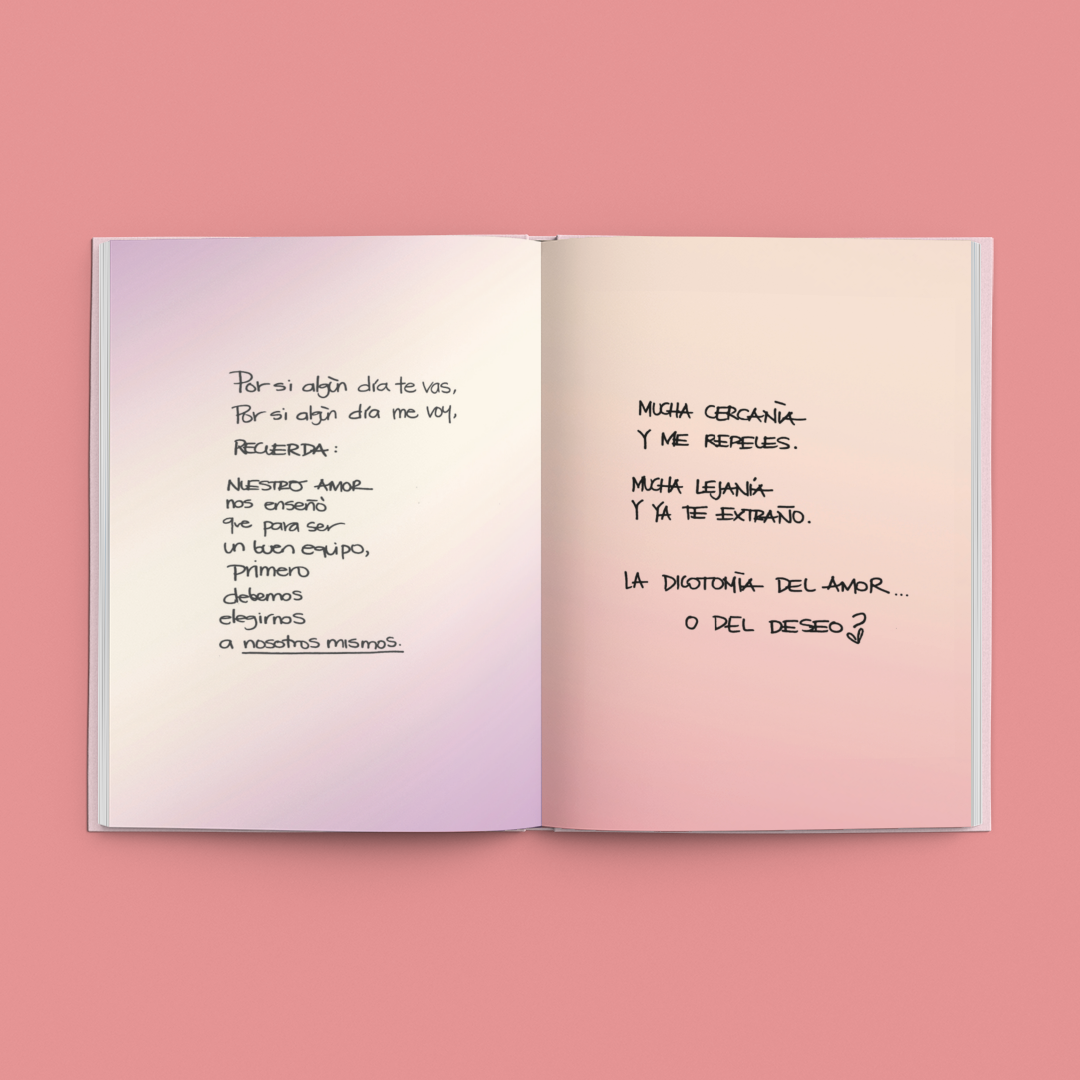 Por si algún día te vas,
Por si algún día me voy,
RECUERDA:
NUESTRO AMOR
nos enseñó
que para ser
un buen equipo,
primero
debemos
elegirnos
a nosotros mismos.
MUCHA CERCANÍA
Y ME REPELES.
MUCHA LEJANÍA
Y YA TE EXTRAÑO.
LA DICOTOMÍA DEL AMOR...
O DEL DESEO?